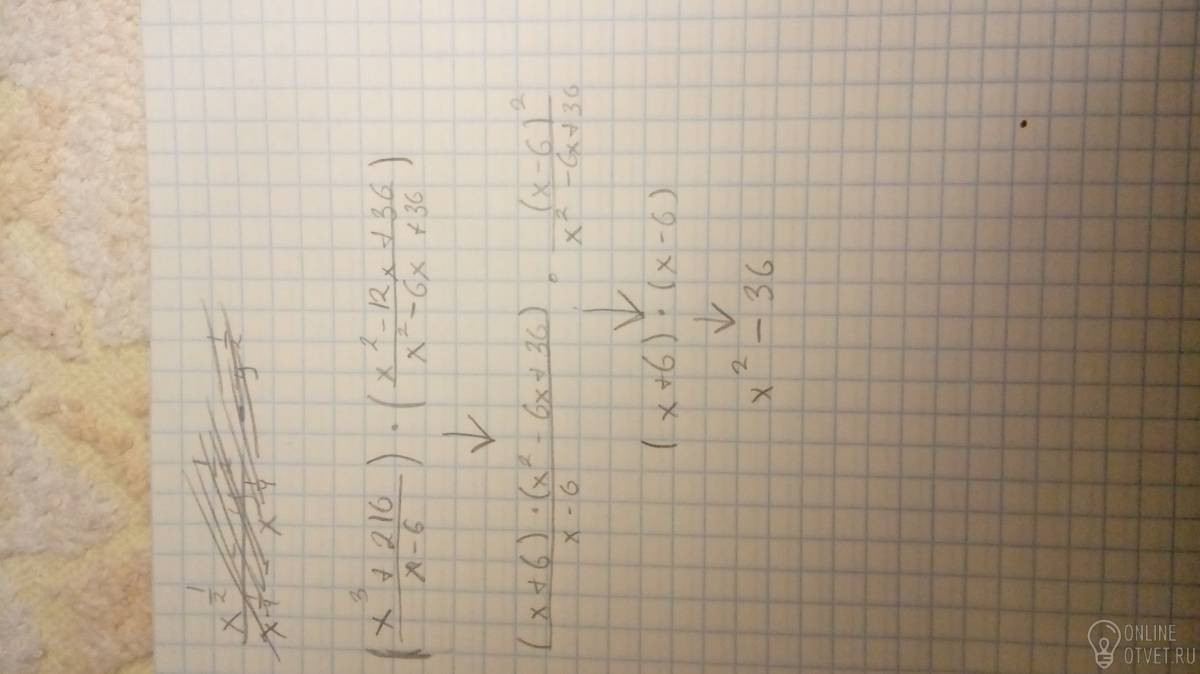 (x³ + 216 / x - 6) · (x² - 12x + 36 / x² - 6x + 36)
↓
(x + 6) · (x² - 6x + 36) / x - 6 · (x - 6)² / x² - 6x + 36
↓
(x + 6) · (x - 6)
↓
x² - 36
ONLINE
OTVET.RU